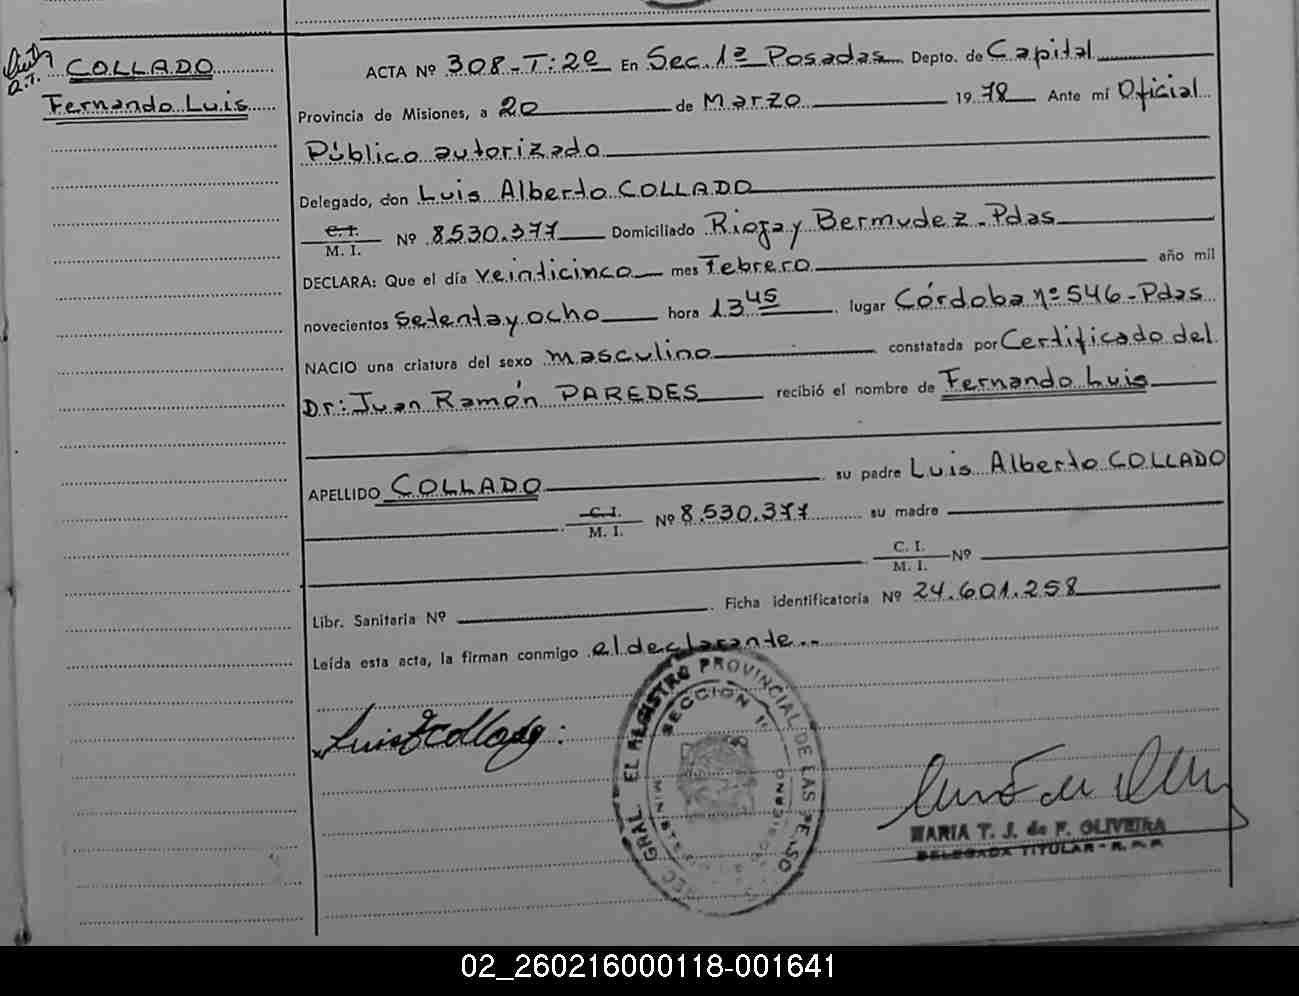 COLLADO
Fernando Luis
ACTA Nº 308-T:2º En Sec. 1ª Posadas Depto. de Capital
Provincia de Misiones, a 20 de Marzo 1978 Ante mí Oficial
Público autorizado
Delegado, don Luis Alberto COLLADO
C. I.
M. I. Nº 8.530.377 Domiciliado Rioja y Bermudez - Pdas
DECLARA: Que el día veinticinco mes Febrero año mil
novecientos setenta y ocho hora 13 45 lugar Córdoba nº 546 - Pdas
NACIO una criatura del sexo masculino constatada por Certificado del
Dr: Juan Ramón PAREDES recibió el nombre de Fernando Luis
APELLIDO COLLADO su padre Luis Alberto COLLADO
C. I.
M. I. Nº 8.530.377 su madre
C. I.
M. I. Nº
Libr. Sanitaria Nº Ficha identificatoria Nº 24.601.258
Leída esta acta, la firman conmigo el declarante..
Luis Collado
GRAL. EL REGISTRO PROVINCIAL DE LAS
SECCION
MARIA T. J. de F. OLIVEIRA
DELEGADA TITULAR - R. P. P.
02_260216000118-001641